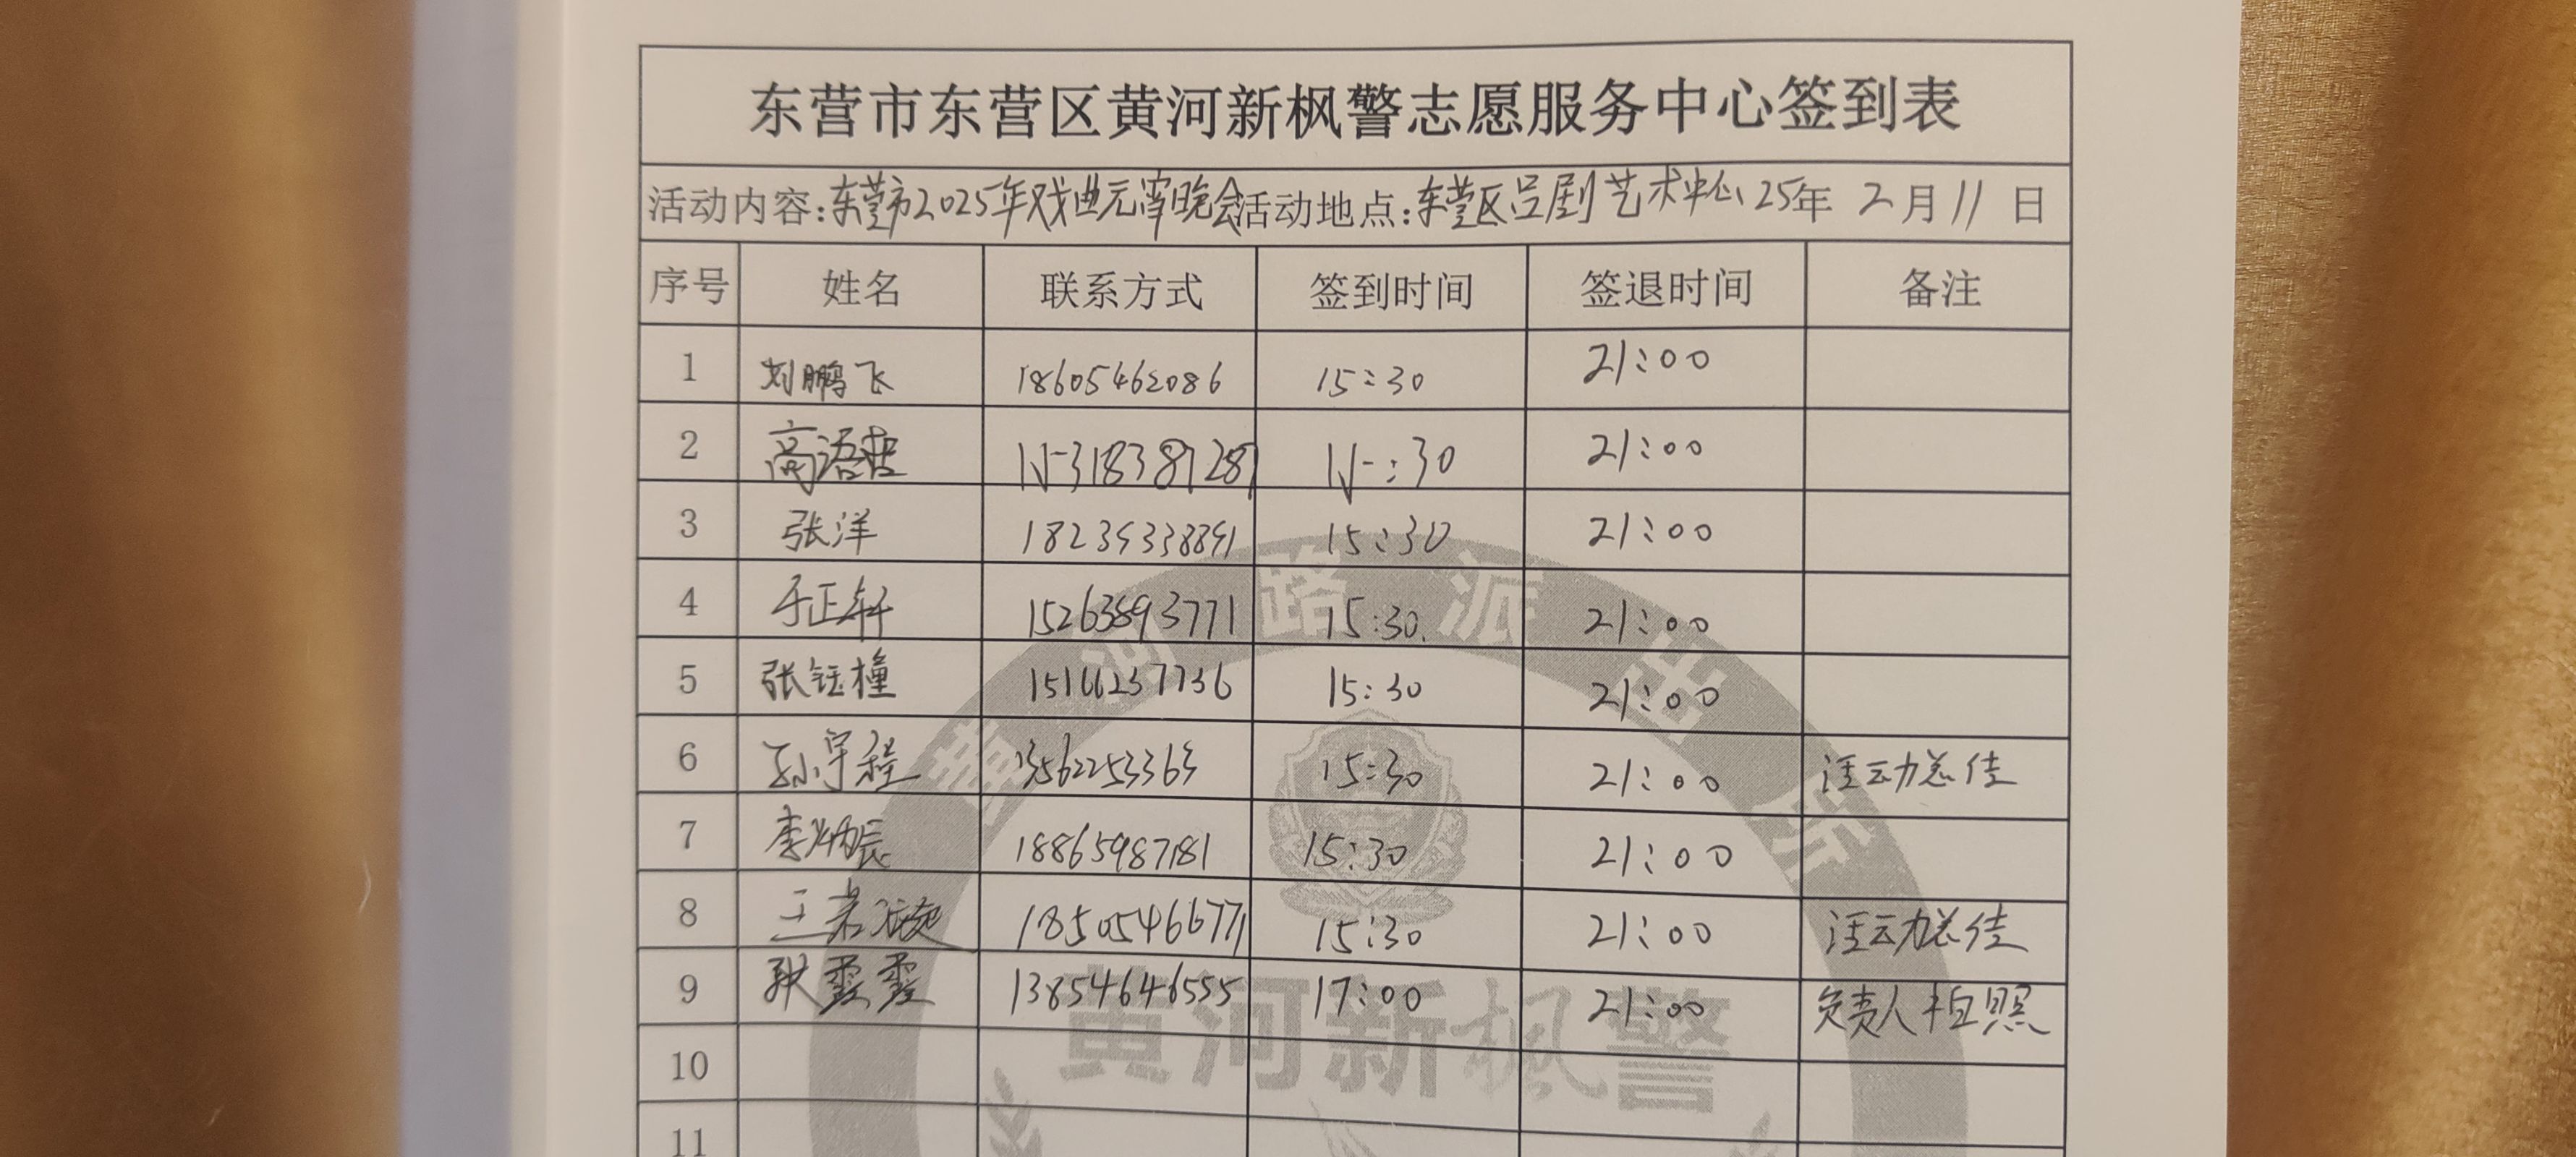 东营市东营区黄河新枫警志愿服务中心签到表
活动内容:东营市2025年戏曲元宵晚会 活动地点:东营区吕剧艺术中心 25年 2月11日
序号 姓名 联系方式 签到时间 签退时间 备注
1 刘鹏飞 18605462086 15:30 21:00
2 高语哲 15318387287 15:30 21:00
3 张洋 15:30 21:00
4 于正轩 15263893771 15:30. 21:00
5 张钰橦 15166237736 15:30 21:00
6 孙宇程 13562253363 15:30 21:00 活动总佳
7 李炳辰 18865987181 15:30 21:00
8 王 18505466771 15:30 21:00 活动总佳
9 耿霞霞 13854646555 17:00 21:00 负责人 拍照
10
11
黄河路派出所
黄河新枫警